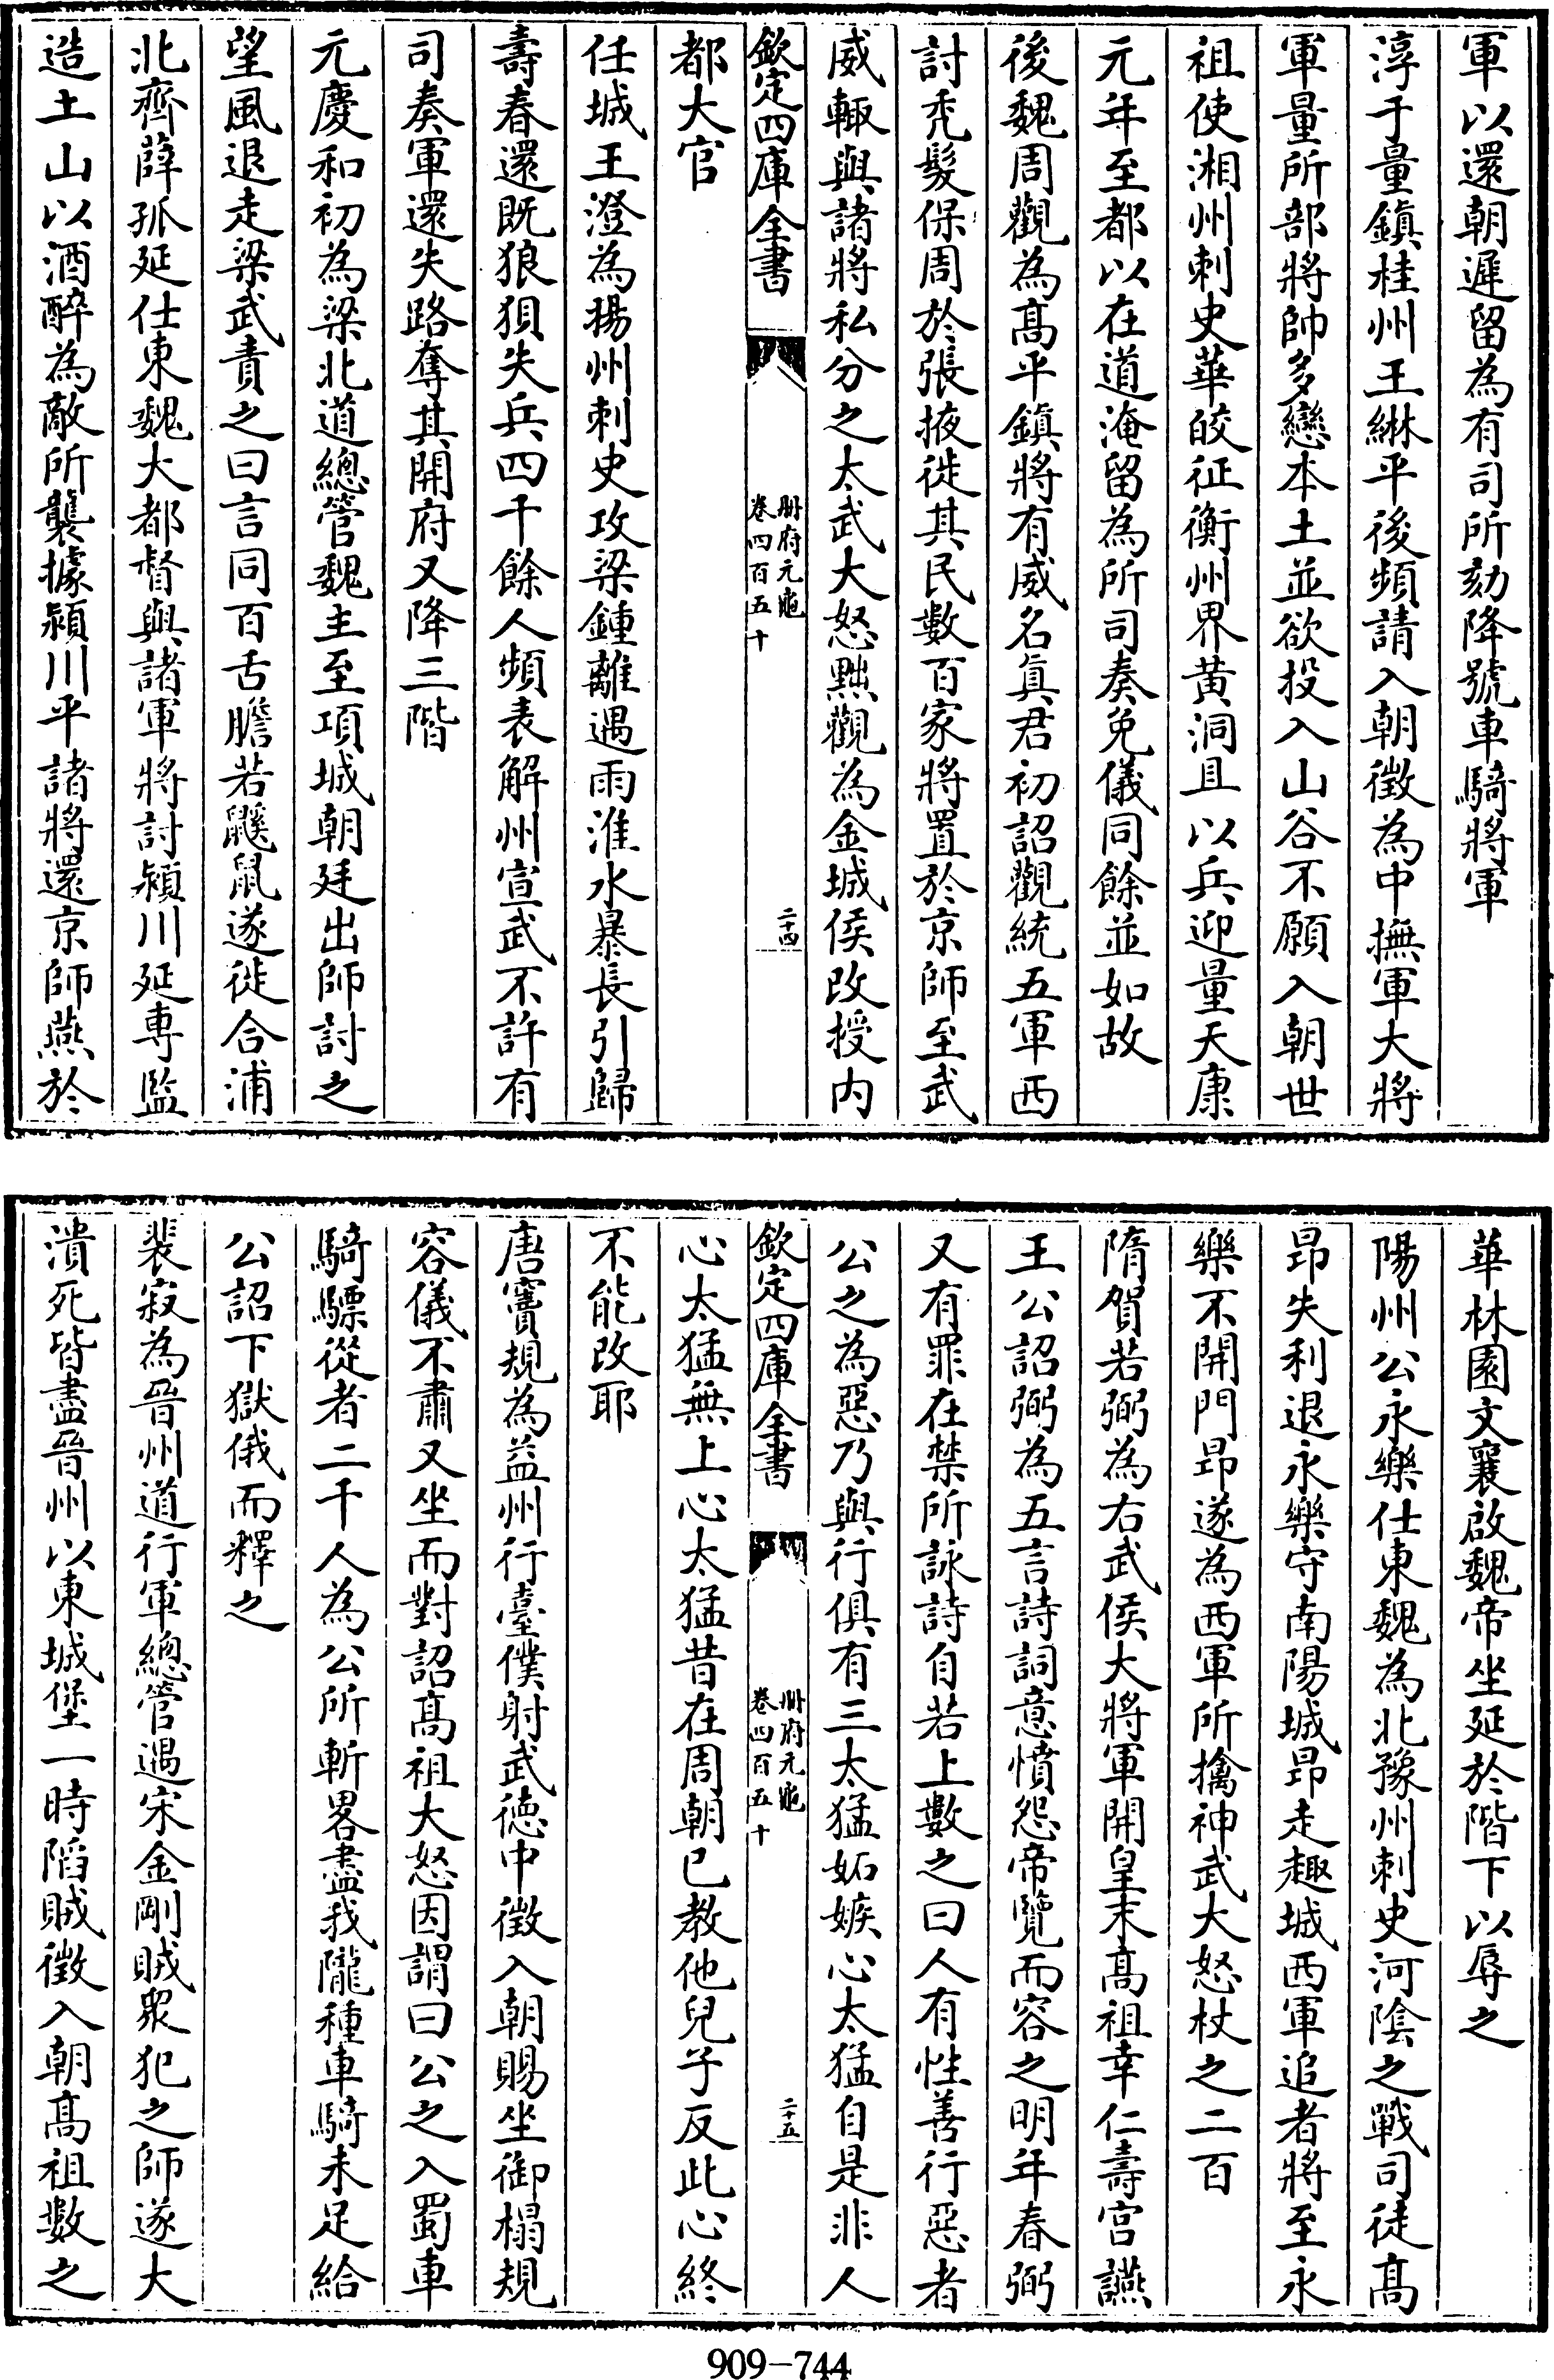 軍以還朝遲留為有司所劾降號車騎將軍
淳于量鎮桂州王綝平後頻請入朝徵為中撫軍大將
軍量所部將帥多戀本土並欲投入山谷不願入朝世
祖使湘州刺史華皎征衡州界黄洞且以兵迎量天康
元年至都以在道淹留為所司奏免儀同餘並如故
後魏周觀為髙平鎮將有威名真君初詔觀統五軍西
討禿髮保周於張掖徙其民數百家將置於京師至武
威輙與諸將私分之太武大怒黜觀為金城侯改授内
欽定四庫全書
册府元龜
卷四百五十
二十四
都大官
任城王澄為揚州刺史攻梁鍾離遇雨淮水暴長引歸
壽春還既狼狽失兵四千餘人頻表解州宣武不許有
司奏軍還失路奪其開府又降三階
元慶和初為梁北道總管魏主至項城朝廷出師討之
望風退走梁武責之曰言同百舌膽若鼷鼠遂徙合浦
北齊薛孤延仕東魏大都督與諸軍將討潁川延専監
造土山以酒醉為敵所襲據潁川平諸將還京師燕於
華林園文襄啟魏帝坐延於階下以辱之
陽州公永樂仕東魏為北豫州刺史河陰之戰司徒髙
昂失利退永樂守南陽城昂走趣城西軍追者將至永
樂不開門昂遂為西軍所擒神武大怒杖之二百
隋賀若弼為右武侯大將軍開皇末髙祖幸仁壽宫讌
王公詔弼為五言詩詞意憤怨帝覽而容之明年春弼
又有罪在禁所詠詩自若上數之曰人有性善行惡者
公之為惡乃與行俱有三太猛妬嫉心太猛自是非人
欽定四庫全書
册府元龜
卷四百五十
二十五
心太猛無上心太猛昔在周朝已教他兒子反此心終
不能改耶
唐竇規為益州行臺僕射武徳中徵入朝賜坐御榻規
容儀不肅又坐而對詔髙祖大怒因謂曰公之入蜀車
騎驃從者二千人為公所斬畧盡我隴種車騎未足給
公詔下獄俄而釋之
裴寂為晉州道行軍總管遇宋金剛賊衆犯之師遂大
潰死皆盡晉州以東城堡一時䧟賊徵入朝髙祖數之
909-744